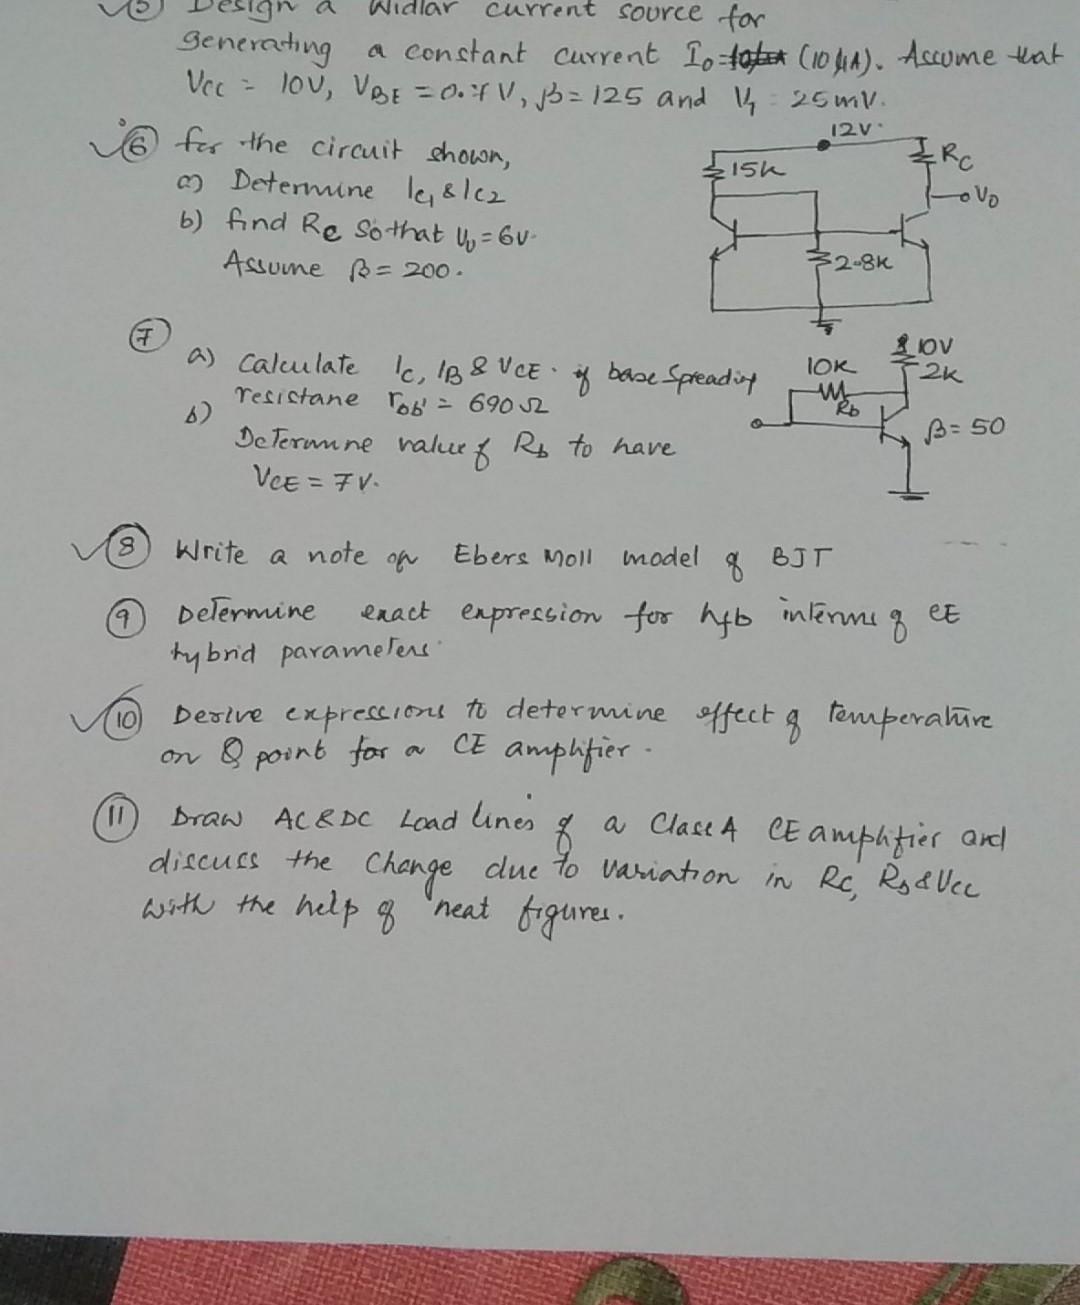 5) Design a Widlar current source for
generating a constant current Io= (10 μA). Assume that
Vcc = 10V, VBE = 0.7V, β = 125 and VT = 25mV.
6 for the circuit shown,
a) Determine Ic1 & Ic2
b) find Rc so that Vo = 6V.
Assume β = 200.
12V
15k
Rc
Vo
2.8K
7
a) Calculate Ic, IB & VCE. if base spreading
resistane rbb' = 690 Ω
b)
Determine value of Rb to have
VCE = 7V.
10V
10K
2K
Rb
β = 50
8 Write a note on Ebers Moll model of BJT
9 Determine exact expression for hfb interms of CE
hybrid parameters
10 Derive expressions to determine effect of temperature
on Q point for a CE amplifier.
11 Draw AC & DC Load lines of a Class A CE amplifier and
discuss the change due to variation in Rc, Rb & Vcc
with the help of neat figures.